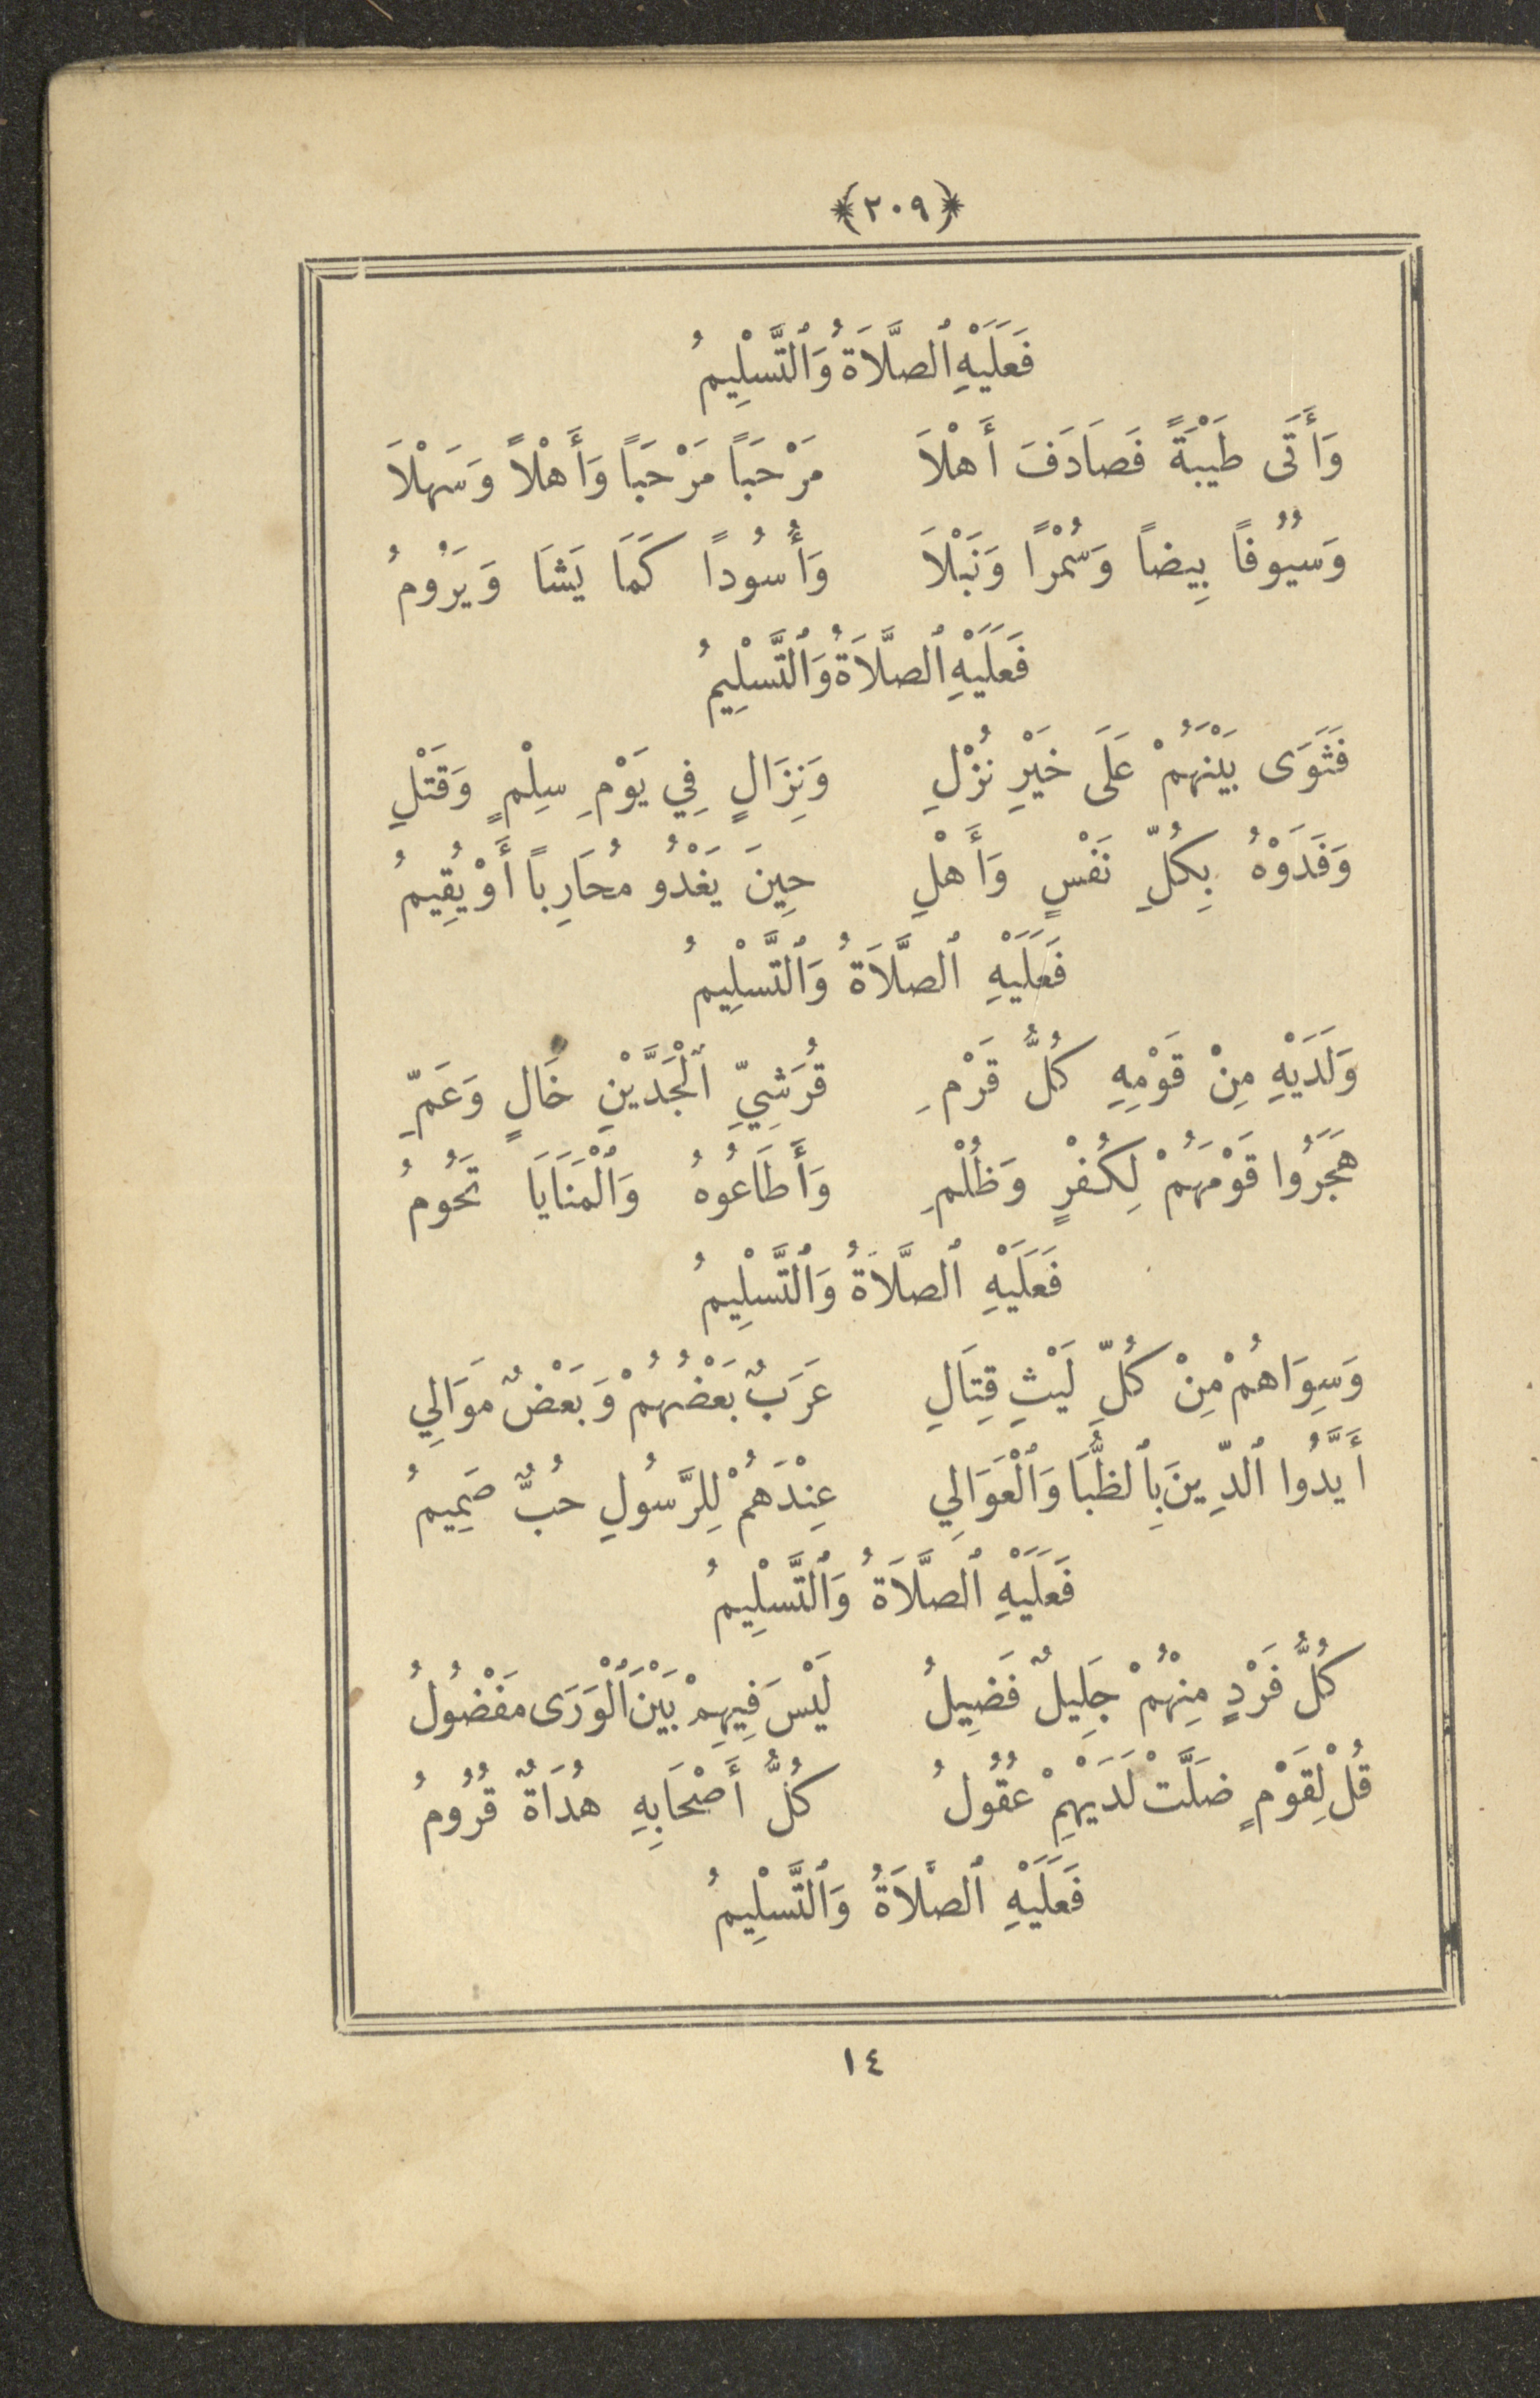 ﴿٢٠٩﴾
فَعَلَيْهِ ٱلصَّلَاةُ وَٱلتَّسْلِيمُ
وَأَتَى طَيْبَةً فَصَادَفَ أَهْلَا مَرْحَبًا مَرْحَبًا وَأَهْلًا وَسَهْلَا
وَسُيُوفًا بِيضاً وَسُمْرًا وَنَبْلَا وَأُسُوداً كَمَا يَشَا وَيَرُومُ
فَعَلَيْهِ ٱلصَّلَاةُ وَٱلتَّسْلِيمُ
فَثَوَى بَيْنَهُمْ عَلَى خَيْرِ نُزْلِ وَنِزَالٍ فِي يَوْمِ سِلْمٍ وَقَتْلِ
وَفَدَوْهُ بِكُلِّ نَفْسٍ وَأَهْلِ حِينَ يَغْدُو مُحَارِباً أَوْ يُقِيمُ
فَعَلَيْهِ ٱلصَّلَاةُ وَٱلتَّسْلِيمُ
وَلَدَيْهِ مِنْ قَوْمِهِ كُلُّ قَرْمِ قُرَشِيِّ ٱلْجَدَّيْنِ خَالٍ وَعَمِّ
هَجَرُوا قَوْمَهُمْ لِكُفْرٍ وَظُلْمِ وَأَطَاعُوهُ وَٱلْمَنَايَا تَحُومُ
فَعَلَيْهِ ٱلصَّلَاةُ وَٱلتَّسْلِيمُ
وَسِوَاهُمْ مِنْ كُلِّ لَيْثِ قِتَالِ عَرَبٌ بَعْضُهُمْ وَبَعْضٌ مَوَالِي
أَيَّدُوا ٱلدِّينَ بِٱلظُّبَا وَٱلْعَوَالِي عِنْدَهُمْ لِلرَّسُولِ حُبٌّ صَمِيمُ
فَعَلَيْهِ ٱلصَّلَاةُ وَٱلتَّسْلِيمُ
كُلُّ فَرْدٍ مِنْهُمْ جَلِيلٌ فَضِيلُ لَيْسَ فِيهِمْ بَيْنَ ٱلْوَرَى مَفْضُولُ
قُلْ لِقَوْمٍ ضَلَّتْ لَدَيْهِمْ عُقُولُ كُلُّ أَصْحَابِهِ هُدَاةٌ قُرُومُ
فَعَلَيْهِ ٱلصَّلَاةُ وَٱلتَّسْلِيمُ
١٤